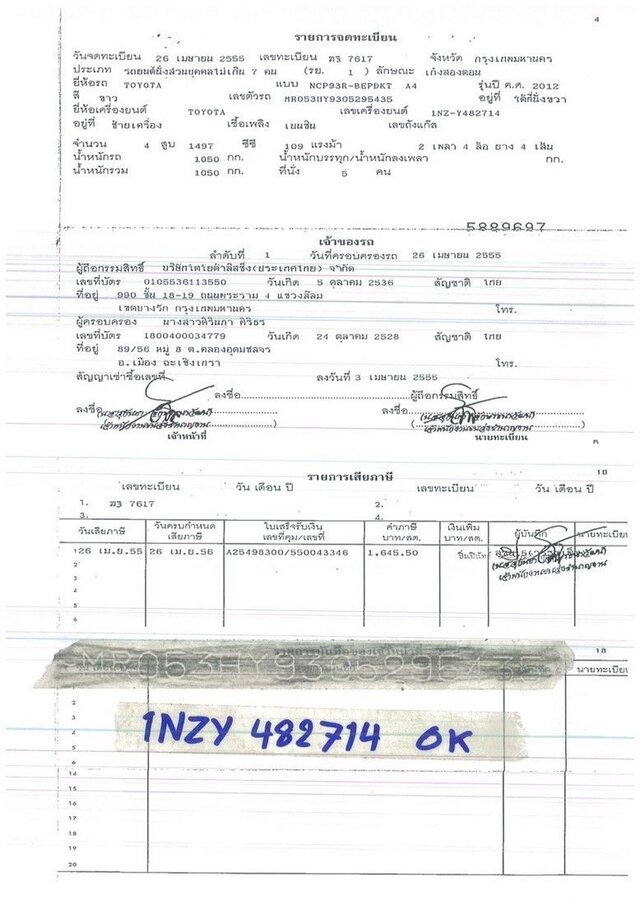 4
รายการจดทะเบียน
วันจดทะเบียน 26 เมษายน 2555 เลขทะเบียน 7617 จังหวัด กรุงเทพมหานคร
ประเภท รถยนต์นั่งส่วนบุคคลไม่เกิน 7 คน (รย. 1 ) ลักษณะ เก๋งสองตอน
ยี่ห้อรถ TOYOTA แบบ NCP93R-BEPDKT A4 รุ่นปี ค.ศ. 2012
สี ขาว เลขตัวรถ MR053HY9305295435 อยู่ที่
ยี่ห้อเครื่องยนต์ TOYOTA เลขเครื่องยนต์ 1NZ-Y482714
อยู่ที่ ซ้ายเครื่อง เชื้อเพลิง เบนซิน เลขถังแก๊ส
จำนวน 4 สูบ 1497 ซีซี 109 แรงม้า 2 เพลา 4 ล้อ ยาง 4 เส้น
น้ำหนักรถ 1050 กก. น้ำหนักบรรทุก/น้ำหนักลงเพลา กก.
น้ำหนักรวม 1050 กก. ที่นั่ง 5 คน
5889697
เจ้าของรถ
ลำดับที่ 1 วันที่ครอบครองรถ 26 เมษายน 2555
ผู้ถือกรรมสิทธิ์ บริษัทโตโยต้าลีสซิ่ง(ประเทศไทย) จำกัด
เลขที่บัตร 0105536113550 วันเกิด 5 ตุลาคม 2536 สัญชาติ ไทย
ที่อยู่ 990 ชั้น 18-19 ถนนพระราม 4 แขวงสีลม
เขตบางรัก กรุงเทพมหานคร โทร.
ผู้ครอบครอง นางสาวศิวิมภา ศิริธร
เลขที่บัตร 1800400034779 วันเกิด 24 ตุลาคม 2528 สัญชาติ ไทย
ที่อยู่ 89/56 หมู่ 8 ต.คลองอุดมชลจร
อ.เมือง ฉะเชิงเทรา โทร.
สัญญาเช่าซื้อเลขที่ ลงวันที่ 3 เมษายน 2555
ลงชื่อ ผู้ถือกรรมสิทธิ์
ลงชื่อ ลงชื่อ
เจ้าหน้าที่ นายทะเบียน
18
รายการเสียภาษี
เลขทะเบียน วัน เดือน ปี เลขทะเบียน วัน เดือน ปี
1. 7617 2.
3. 4.
วันเสียภาษี วันครบกำหนดเสียภาษี ใบเสร็จรับเงิน เลขที่คุม/เลขที่ ค่าภาษี บาท/สต. เงินเพิ่ม บาท/สต. ผู้บันทึก นายทะเบียน
26 เม.ย.55 26 เม.ย.56 A25498300/550043346 1,645.50
3
4
5
6
รายการบันทึกของเจ้าหน้าที่ 18
นายทะเบียน
2
3
4
5
6
1NZY 482714 OK
14
15
16
17
18
19
20